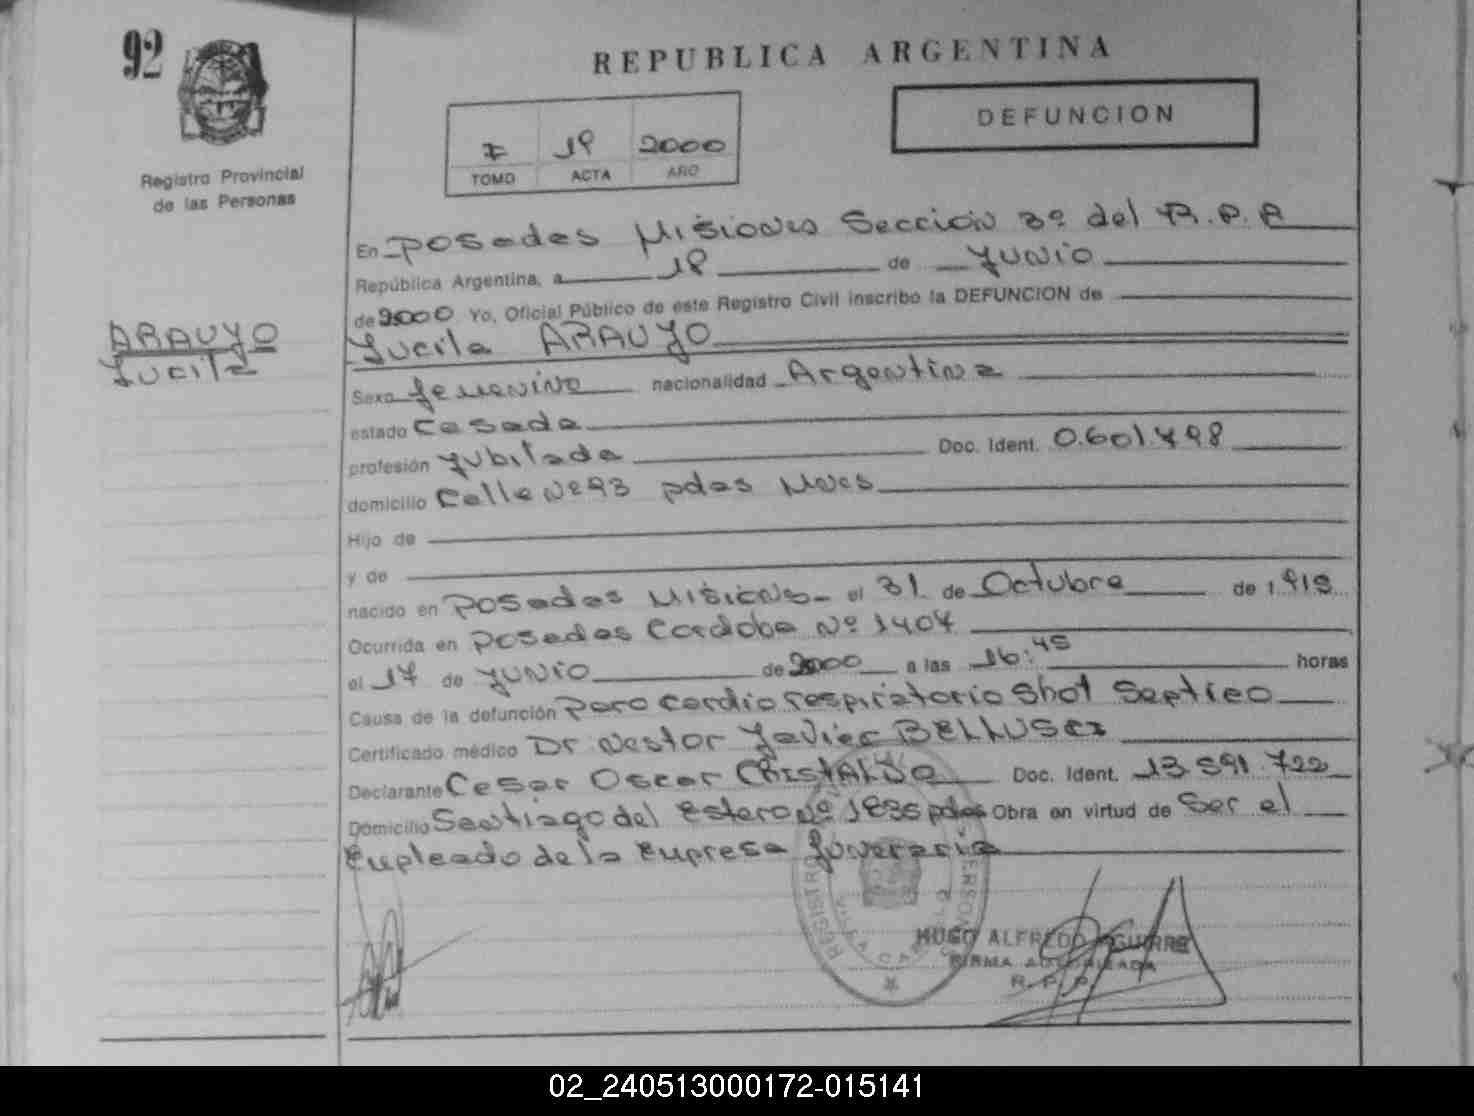 92
REPUBLICA ARGENTINA
DEFUNCION
I 19 2000
TOMO ACTA AÑO
Registro Provincial
de las Personas
En Posadas Misiones Sección 3º del R.P.P
República Argentina, a 18 de Junio
de 2000 Yo, Oficial Público de este Registro Civil inscribo la DEFUNCION de
ARAUJO
Lucila
Lucila ARAUJO
Sexo femenino nacionalidad Argentina
estado Casada
profesión Jubilada Doc. Ident. 0.601.498
domicilio Calle Nº 93 pdas Mnes
Hijo de
y de
nacido en Posadas Misiones el 31 de Octubre de 1.915
Ocurrida en Posadas Cordoba Nº 1404
el 17 de Junio de 2000 a las 16:45 horas
Causa de la defunción Paro cardiorespiratorio Shot Septico
Certificado médico Dr Nestor Javier BELLUSCI
Declarante Cesar Oscar CRISTALDO Doc. Ident. 13 591.722
Domicilio Santiago del Estero Nº 1836 pdas Obra en virtud de Ser el
Empleado de la Empresa funeraria
HUGO ALFREDO AGUIRRE
FIRMA AUTORIZADA
R. P. P.
02_240513000172-015141